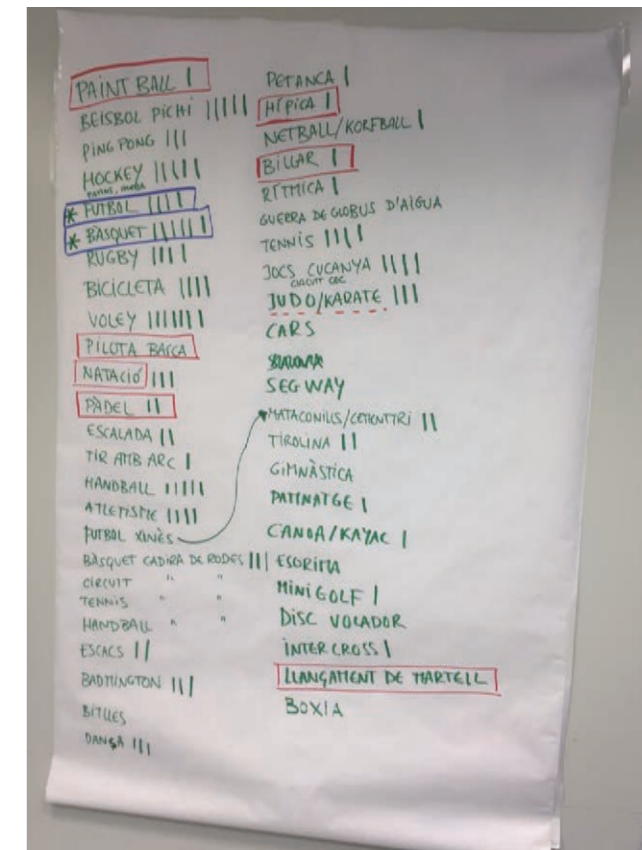 PAINT BALL |
BEISBOL PICHI |||||
PING PONG |||
HOCKEY |||||
* FUTBOL ||||
* BÀSQUET ||||||
RUGBY ||||
BICICLETA ||||
VOLEY |||||||
PILOTA BASCA
NATACIÓ |||
PÀDEL ||
ESCALADA ||
TIR AMB ARC |
HANDBALL |||||
ATLETISME ||||
FUTBOL XINÈS
BÀSQUET CADIRA DE RODES |||
CIRCUIT " "
TENNIS " "
HANDBALL " "
ESCACS ||
BADMINGTON |||
BITLLES
DANSA |||
PETANCA |
HÍPICA |
NETBALL/KORFBALL |
BILLAR ||
RÍTMICA |
GUERRA DE GLOBUS D'AIGUA
TENNIS ||||
JOCS CUCANYA ||||
JUDO/KARATE |||
CARS
SEGWAY
MATACONILLS/CEMENTIRI ||
TIROLINA ||
GIMNÀSTICA
PATINATGE |
CANOA/KAYAC |
ESGRIMA
MINIGOLF |
DISC VOLADOR
INTERCROSS |
LLANÇAMENT DE MARTELL
BOXIA